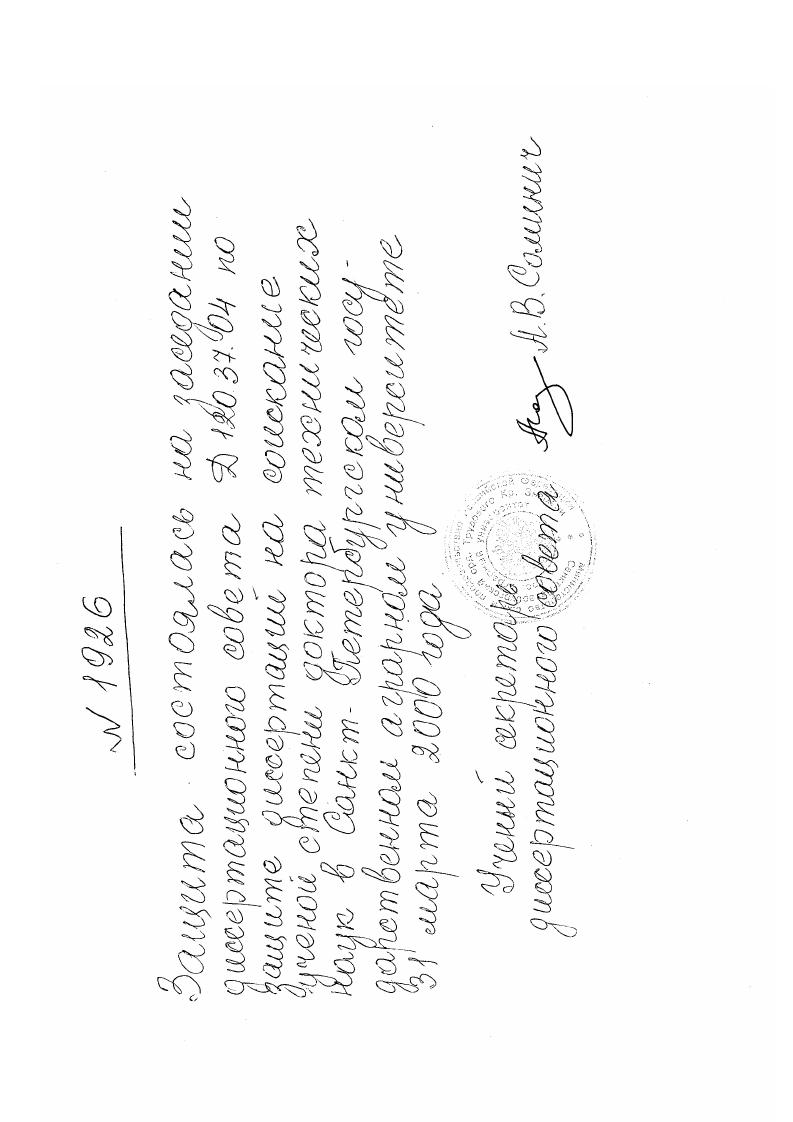 N 1926
Защита состоялась на заседании
диссертационного совета Д 120.37.04 по
защите диссертаций на соискание
ученой степени доктора технических
наук в Санкт-Петербургском госу-
дарственном аграрном университете
31 марта 2000 года
Ученый секретарь
диссертационного совета А.В. Соминич